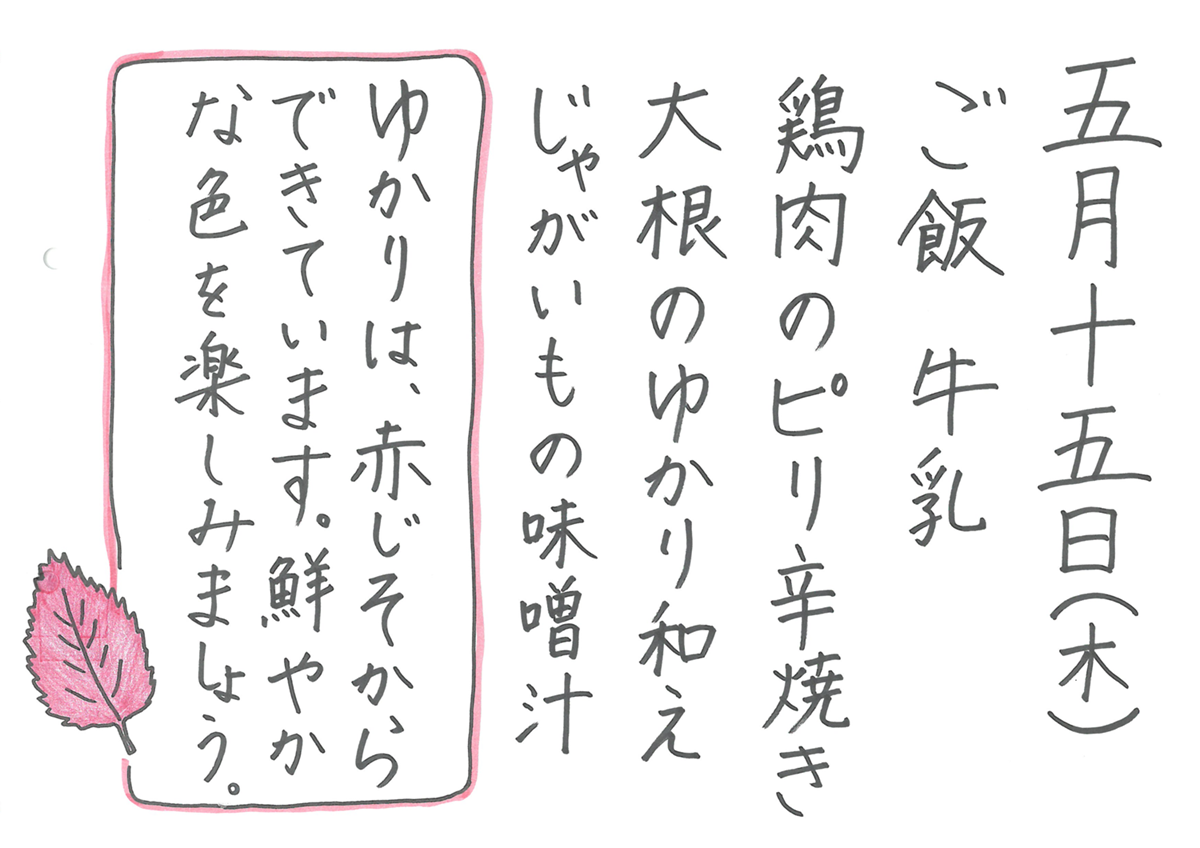 五月十五日(木)
ご飯　牛乳
鶏肉のピリ辛焼き
大根のゆかり和え
じゃがいもの味噌汁
ゆかりは、赤じそから
できています。鮮やか
な色を楽しみましょう。